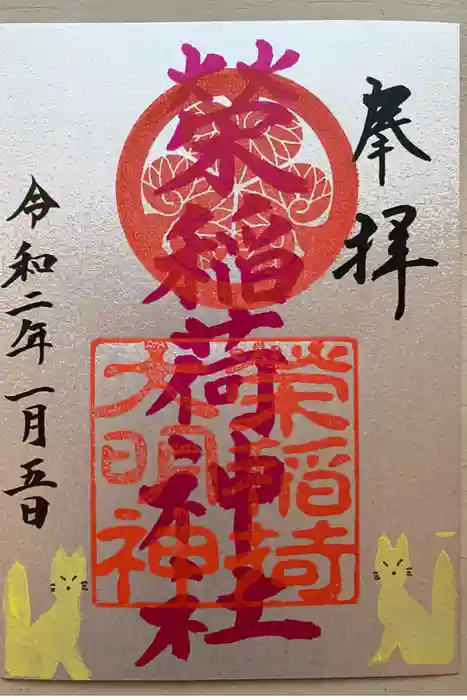 奉拝
榮稲荷神社
榮稲荷
大明神
令和二年一月五日